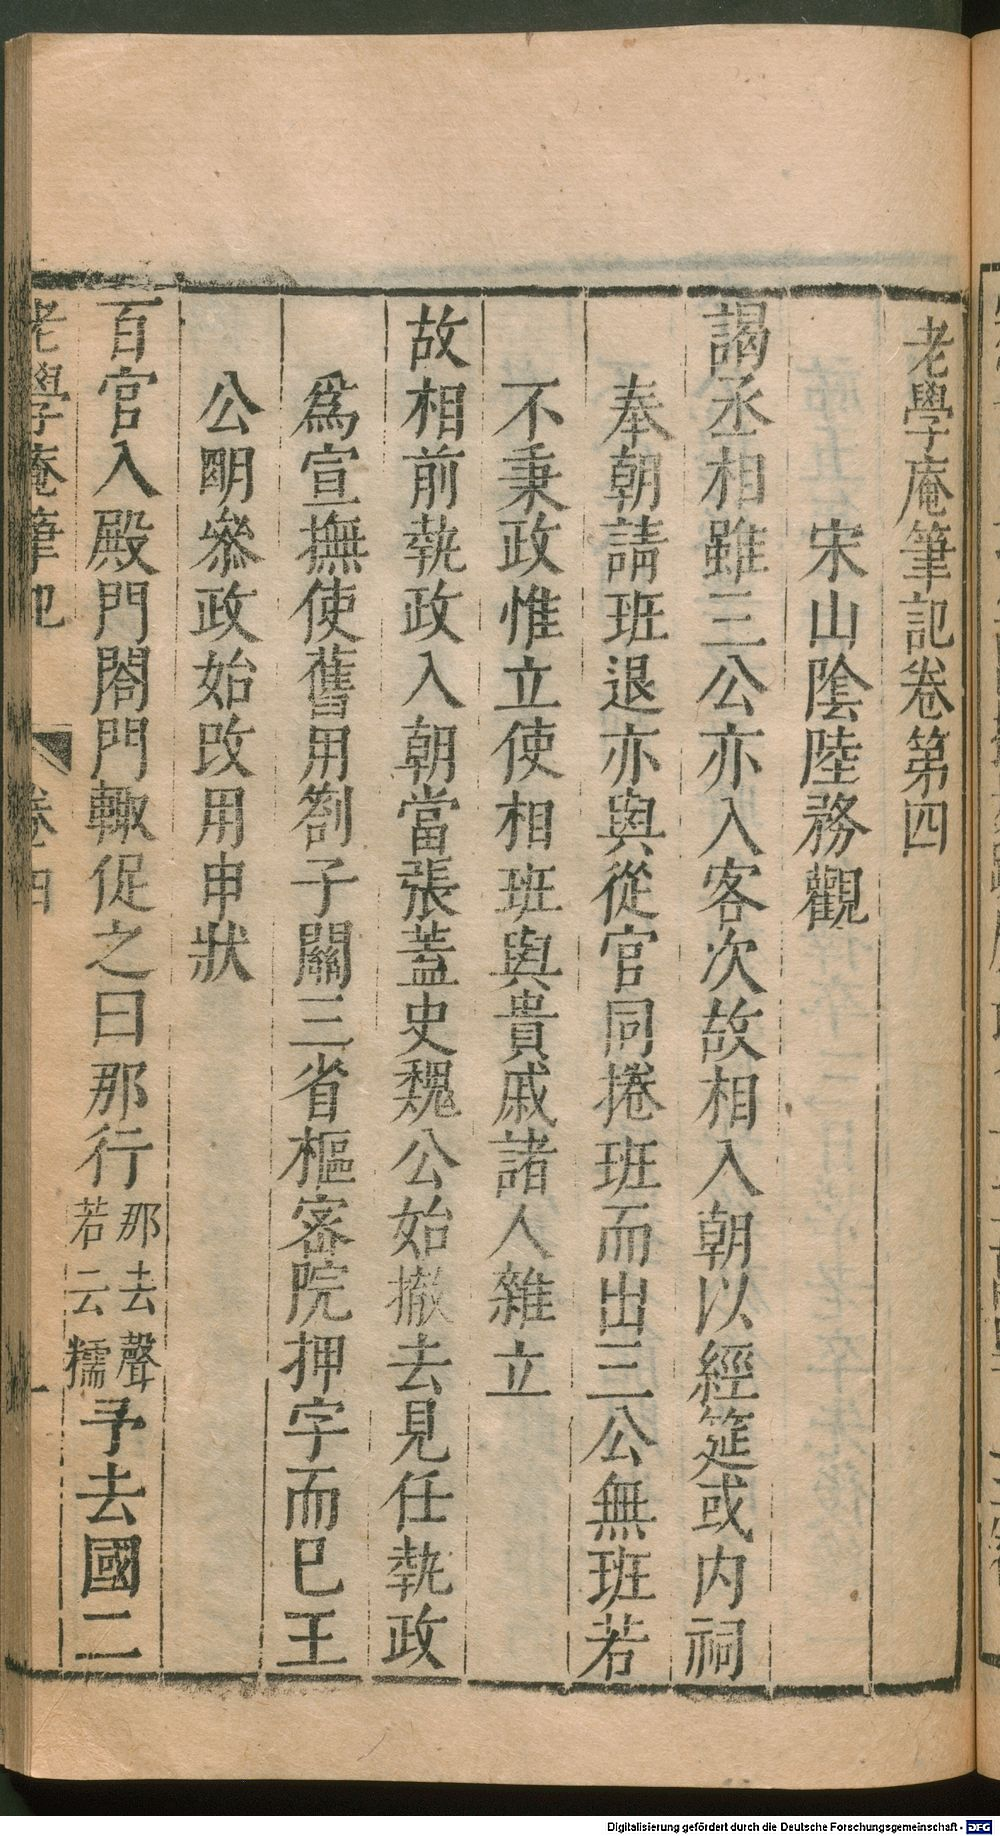 老學庵筆記卷第四
宋山陰陸務觀
謁丞相雖三公亦入客次故相入朝以經筵或内祠
奉朝請班退亦與從官同捲班而出三公無班若
不秉政惟立使相班與貴戚諸人雜立
故相前執政入朝當張蓋史魏公始撤去見任執政
爲宣撫使舊用劄子關三省樞密院押字而已王
公明叅政始改用申狀
百官入殿門閤門輙促之曰那行那去聲若云糯予去國二
老學庵筆記 卷四 一
Digitalisierung gefördert durch die Deutsche Forschungsgemeinschaft - DFG